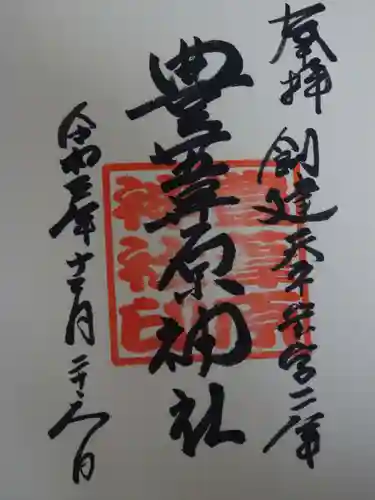 奉拝
創建天平宝字二年
豊葦原神社
令和三年十二月二十六日